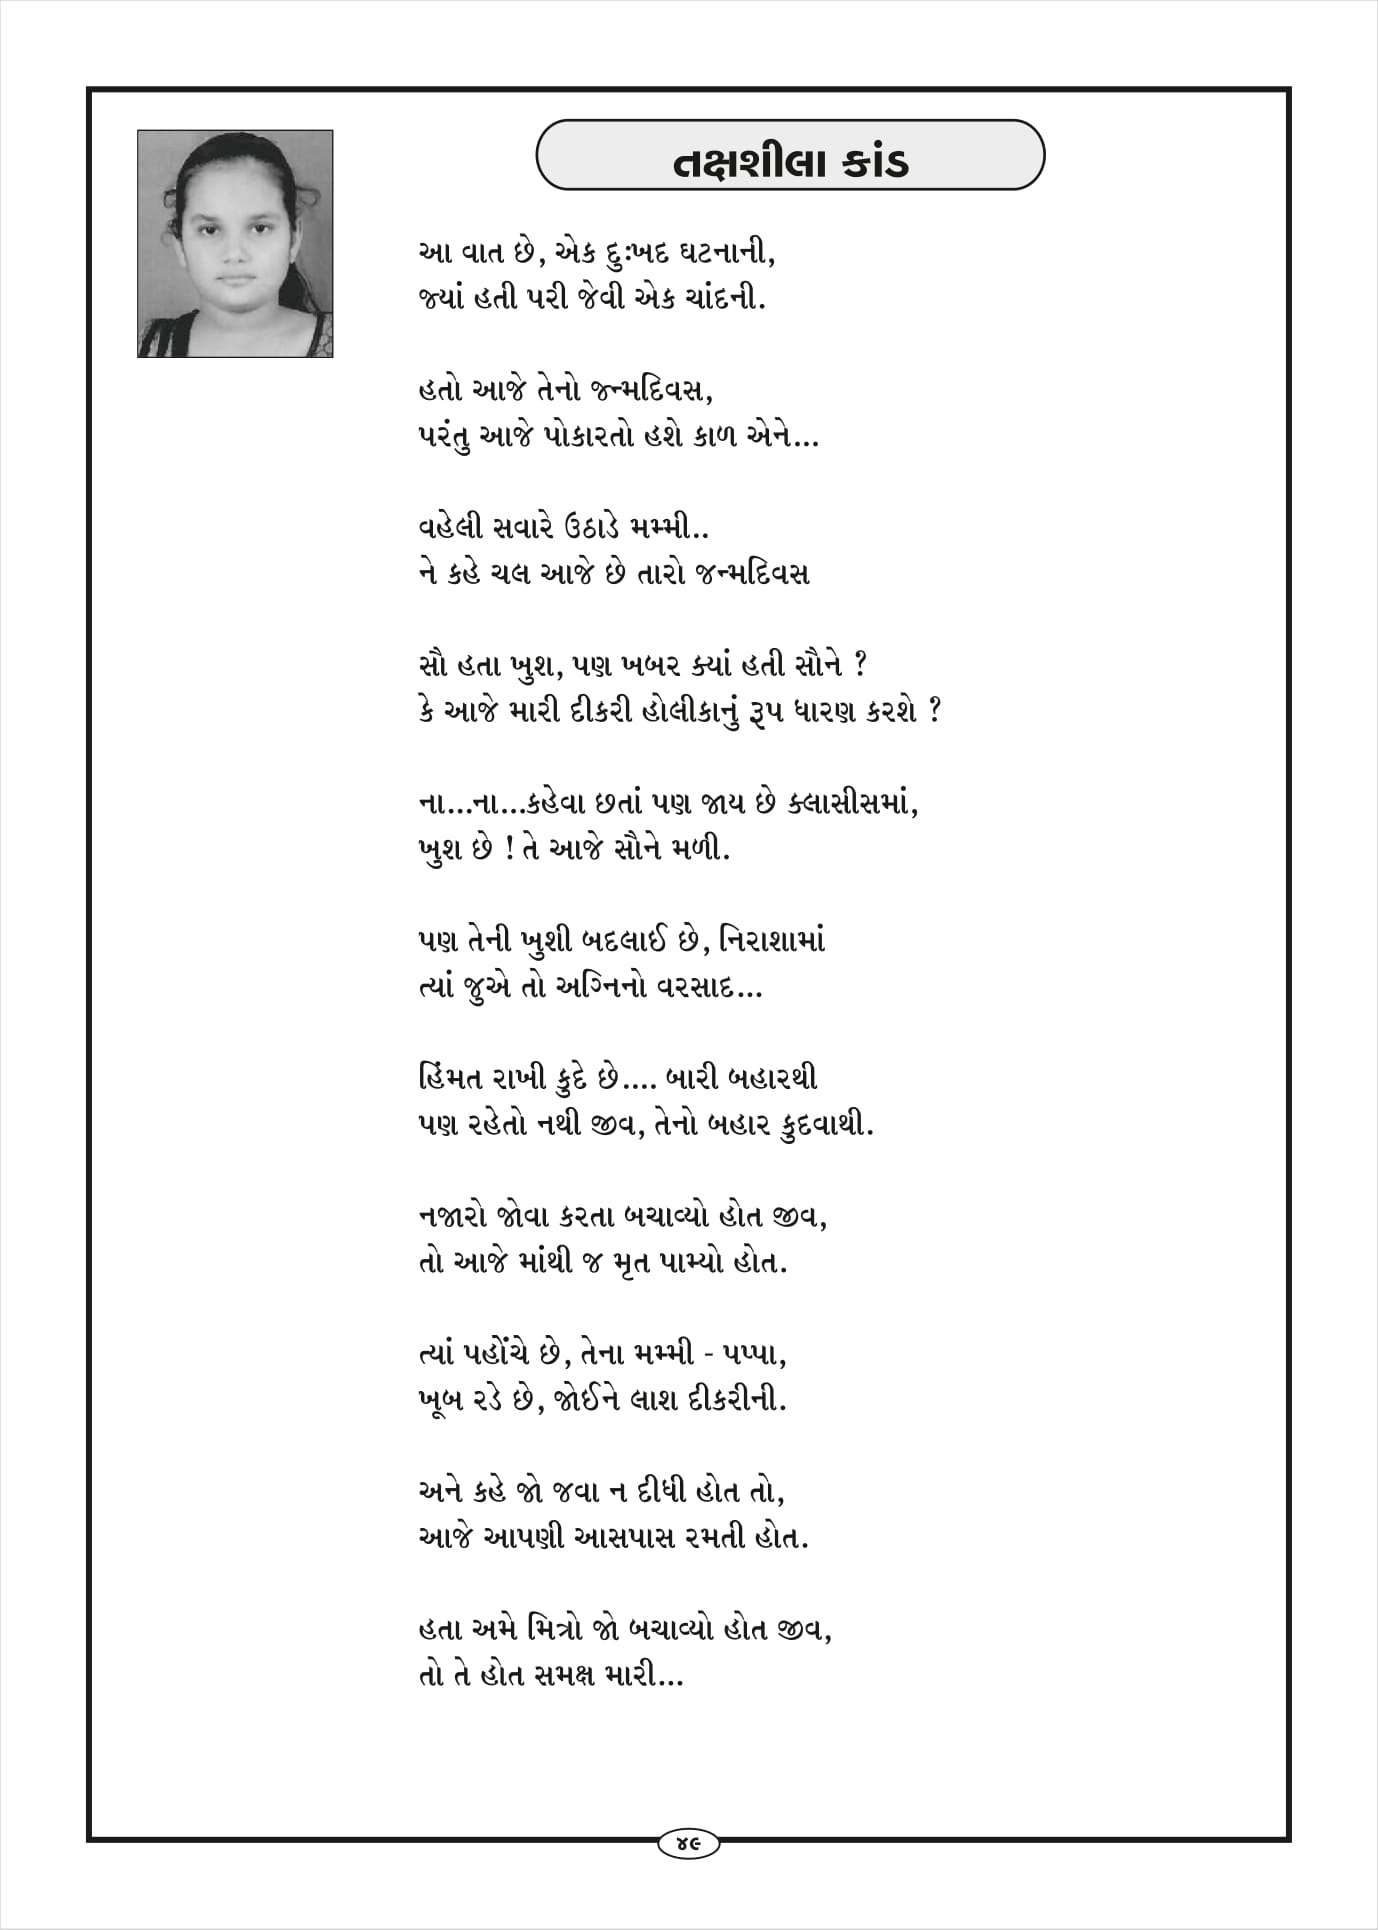 તક્ષશીલા કાંડ
આ વાત છે, એક દુઃખદ ઘટનાની,
જ્યાં હતી પરી જેવી એક ચાંદની.
હતો આજે તેનો જન્મદિવસ,
પરંતુ આજે પોકારતો હશે કાળ એને...
વહેલી સવારે ઉઠાડે મમ્મી..
ને કહે ચલ આજે છે તારો જન્મદિવસ
સૌ હતા ખુશ, પણ ખબર ક્યાં હતી સૌને ?
કે આજે મારી દીકરી હોલીકાનું રૂપ ધારણ કરશે ?
ના...ના...કહેવા છતાં પણ જાય છે ક્લાસીસમાં,
ખુશ છે ! તે આજે સૌને મળી.
પણ તેની ખુશી બદલાઈ છે, નિરાશામાં
ત્યાં જુએ તો અગ્નિનો વરસાદ...
હિંમત રાખી કુદે છે.... બારી બહારથી
પણ રહેતો નથી જીવ, તેનો બહાર કુદવાથી.
નજારો જોવા કરતા બચાવ્યો હોત જીવ,
તો આજે માંથી જ મૃત પામ્યો હોત.
ત્યાં પહોંચે છે, તેના મમ્મી - પપ્પા,
ખૂબ રડે છે, જોઈને લાશ દીકરીની.
અને કહે જો જવા ન દીધી હોત તો,
આજે આપણી આસપાસ રમતી હોત.
હતા અમે મિત્રો જો બચાવ્યો હોત જીવ,
તો તે હોત સમક્ષ મારી...
૪૯